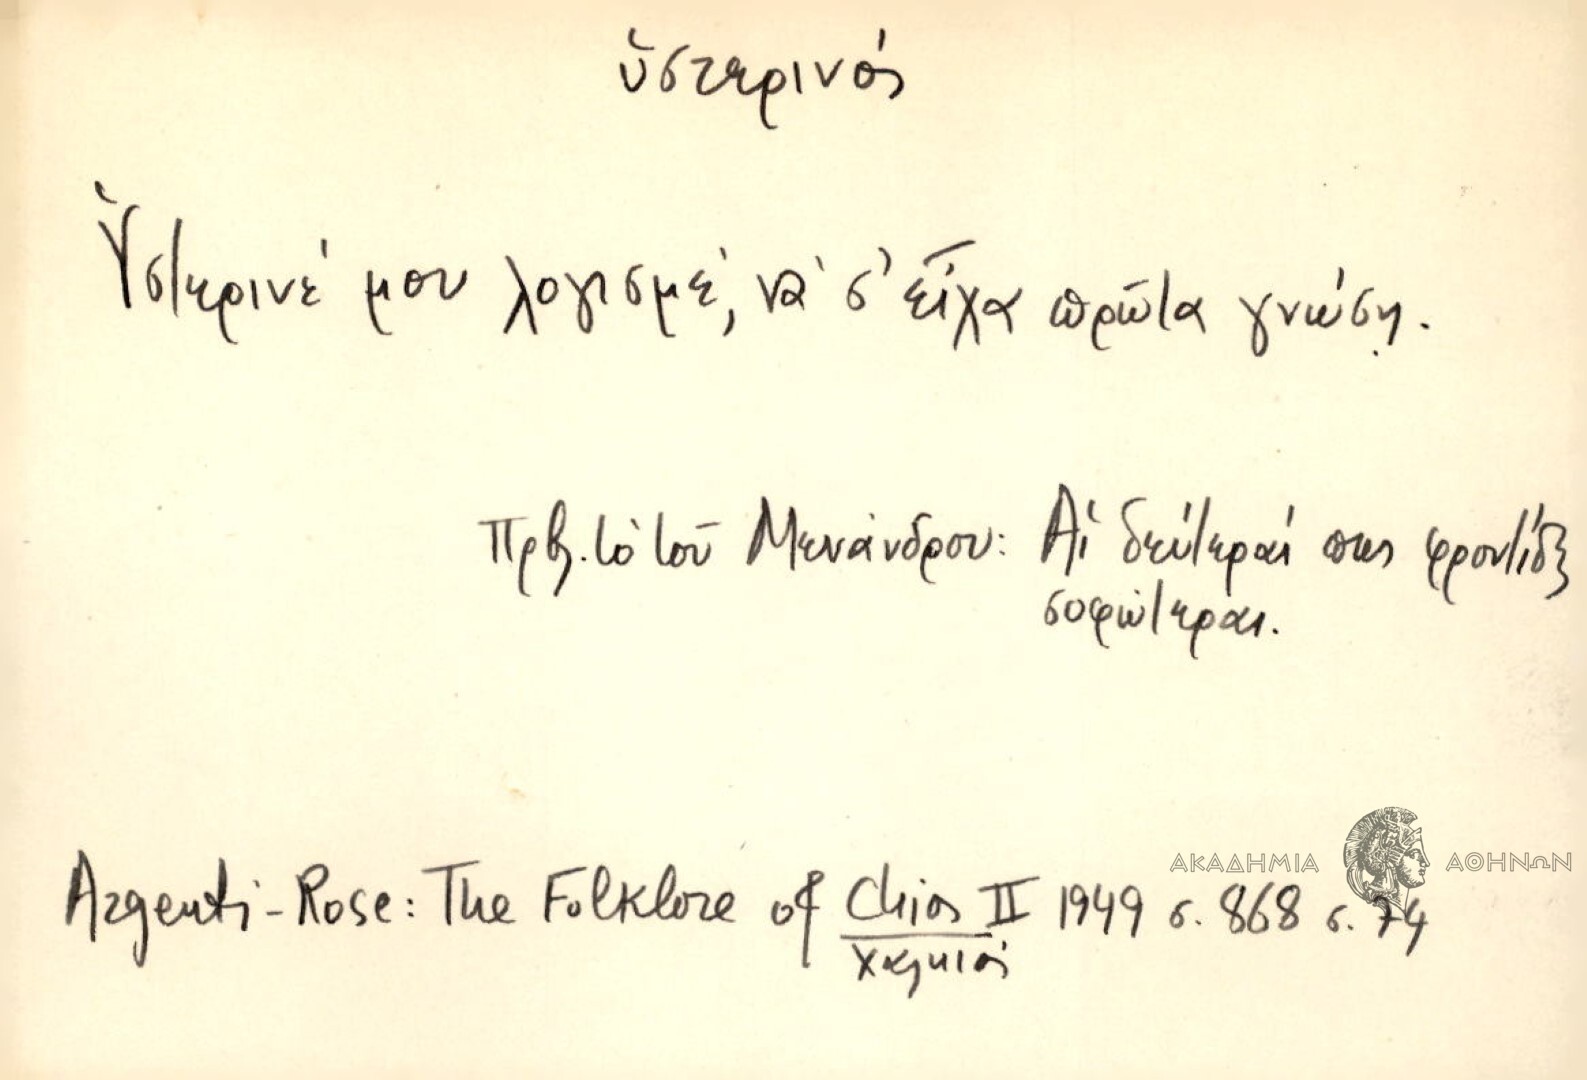 ὑστερινός
Ὑστερινέ μου λογισμέ, νὰ σ' εἶχα πρῶτα γνώση.
Πρβ. τὸ τοῦ Μενάνδρου: Αἱ δεύτεραί πως φροντίδες
σοφώτεραι.
ΑΚΑΔΗΜΙΑ ΑΘΗΝΩΝ
Argenti-Rose: The Folklore of Chios II 1949 σ. 868 σ. 74